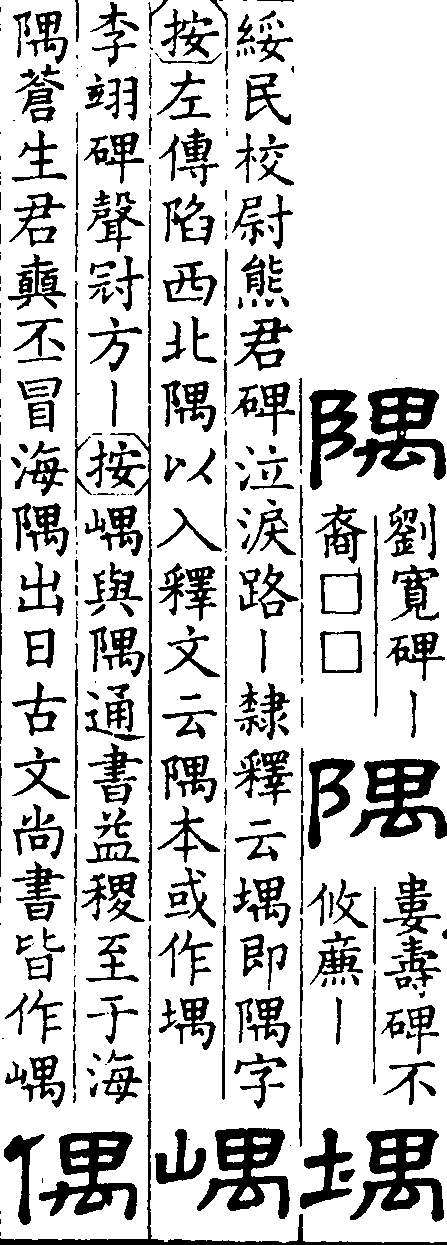 隅
劉寬碑丨
裔□□
隅
婁壽碑不
攸㢘丨
堣
綏民校尉熊君碑泣淚路丨隸釋云堣即隅字
按左傳陷西北隅以入釋文云隅本或作堣
嵎
李翊碑聲冠方丨按嵎與隅通書益稷至于海
隅蒼生君奭丕冒海隅出日古文尚書皆作嵎
偶